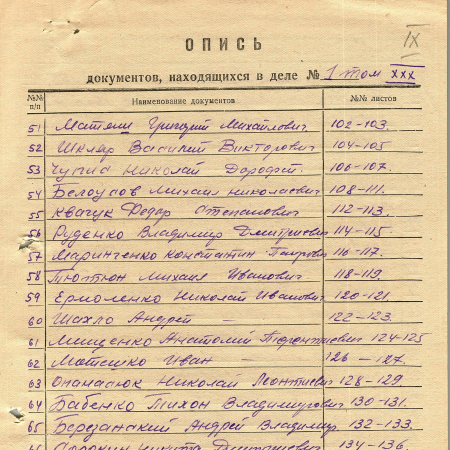 IX
ОПИСЬ
документов, находящихся в деле № 1 том XXX
№№ п/п Наименование документов №№ листов
51 Григорий Михайлович 102-103.
52 Шкляр Василий Викторович 104-105
53 Чуприна Николай Дорофей. 106-107.
54 Белоусов Михаил Николаевич 108-111.
55 Квачук Федор Степанович 112-113.
56 Руденко Владимир Дмитриевич 114-115
57 Маринченко Константин Петрович 116-117.
58 Тютюн Михаил Иванович 118-119.
59 Ермоленко Николай Иванович 120-121.
60 Шахло Андрей — 122-123.
61 Мищенко Анатолий Терентиевич 124-125
62 Матюшко Иван — 126-127.
63 Опанасюк Николай Леонтиевич 128-129
64 Бабенко Тихон Владимирович 130-131.
65 Березанский Андрей Владимир. 132-133.
Сорокин Никита Дмитриевич 134-136.